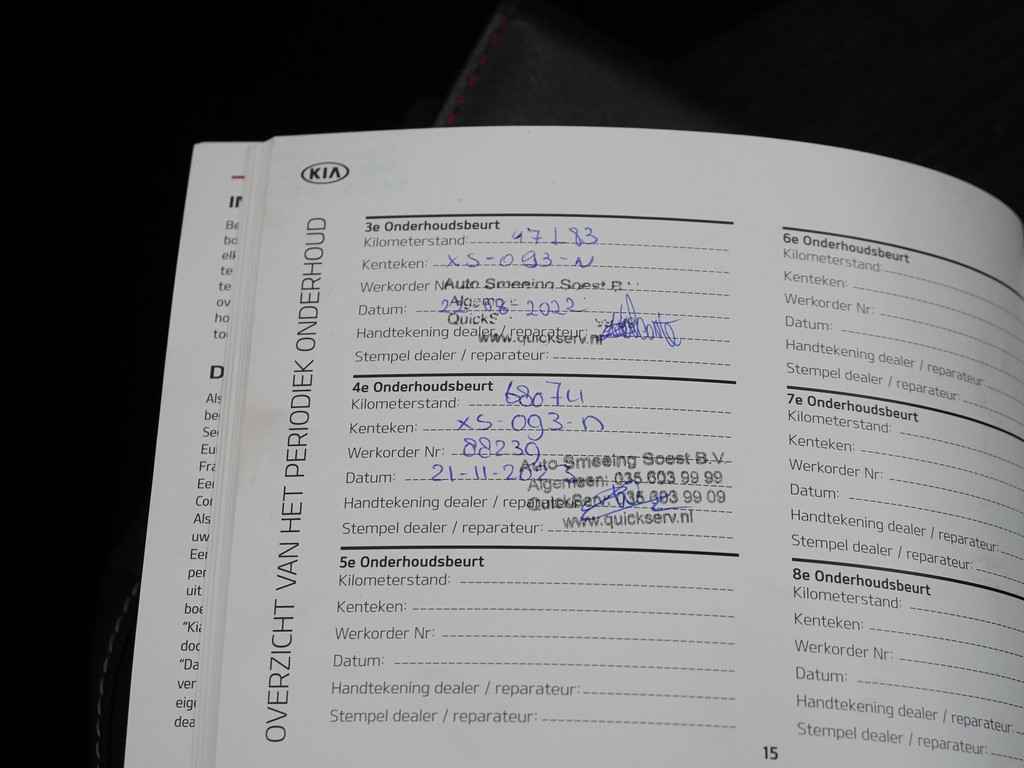 KIA
OVERZICHT VAN HET PERIODIEK ONDERHOUD
3e Onderhoudsbeurt
Kilometerstand: 47183
Kenteken: XS-093-N
Werkorder Nr:
Auto Smeeing Soest B.V.
Datum: 22-08-2022
Handtekening dealer / reparateur:
www.quickserv.nl
Stempel dealer / reparateur:
4e Onderhoudsbeurt
Kilometerstand: 68074
Kenteken: XS-093-N
Werkorder Nr: 88239
Auto Smeeing Soest B.V.
Datum: 21-11-2023
Algemeen: 035 603 99 99
Handtekening dealer / reparateur:
QuickServ: 035 603 99 09
www.quickserv.nl
Stempel dealer / reparateur:
5e Onderhoudsbeurt
Kilometerstand:
Kenteken:
Werkorder Nr:
Datum:
Handtekening dealer / reparateur:
Stempel dealer / reparateur:
6e Onderhoudsbeurt
Kilometerstand:
Kenteken:
Werkorder Nr:
Datum:
Handtekening dealer / reparateur:
Stempel dealer / reparateur:
7e Onderhoudsbeurt
Kilometerstand:
Kenteken:
Werkorder Nr:
Datum:
Handtekening dealer / reparateur:
Stempel dealer / reparateur:
8e Onderhoudsbeurt
Kilometerstand:
Kenteken:
Werkorder Nr:
Datum:
Handtekening dealer / reparateur:
Stempel dealer / reparateur:
15